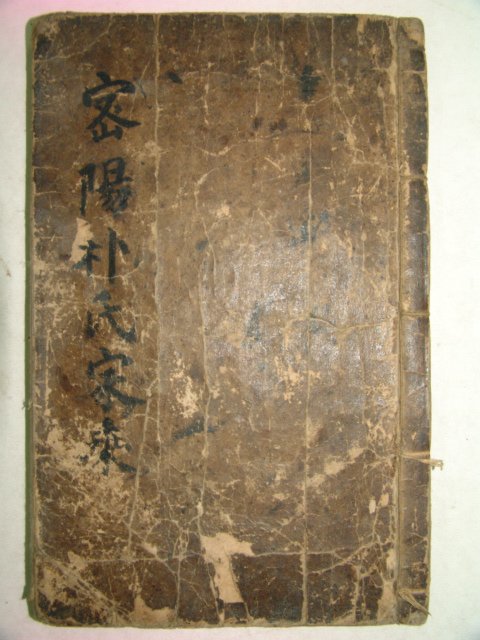 密陽朴氏家乘